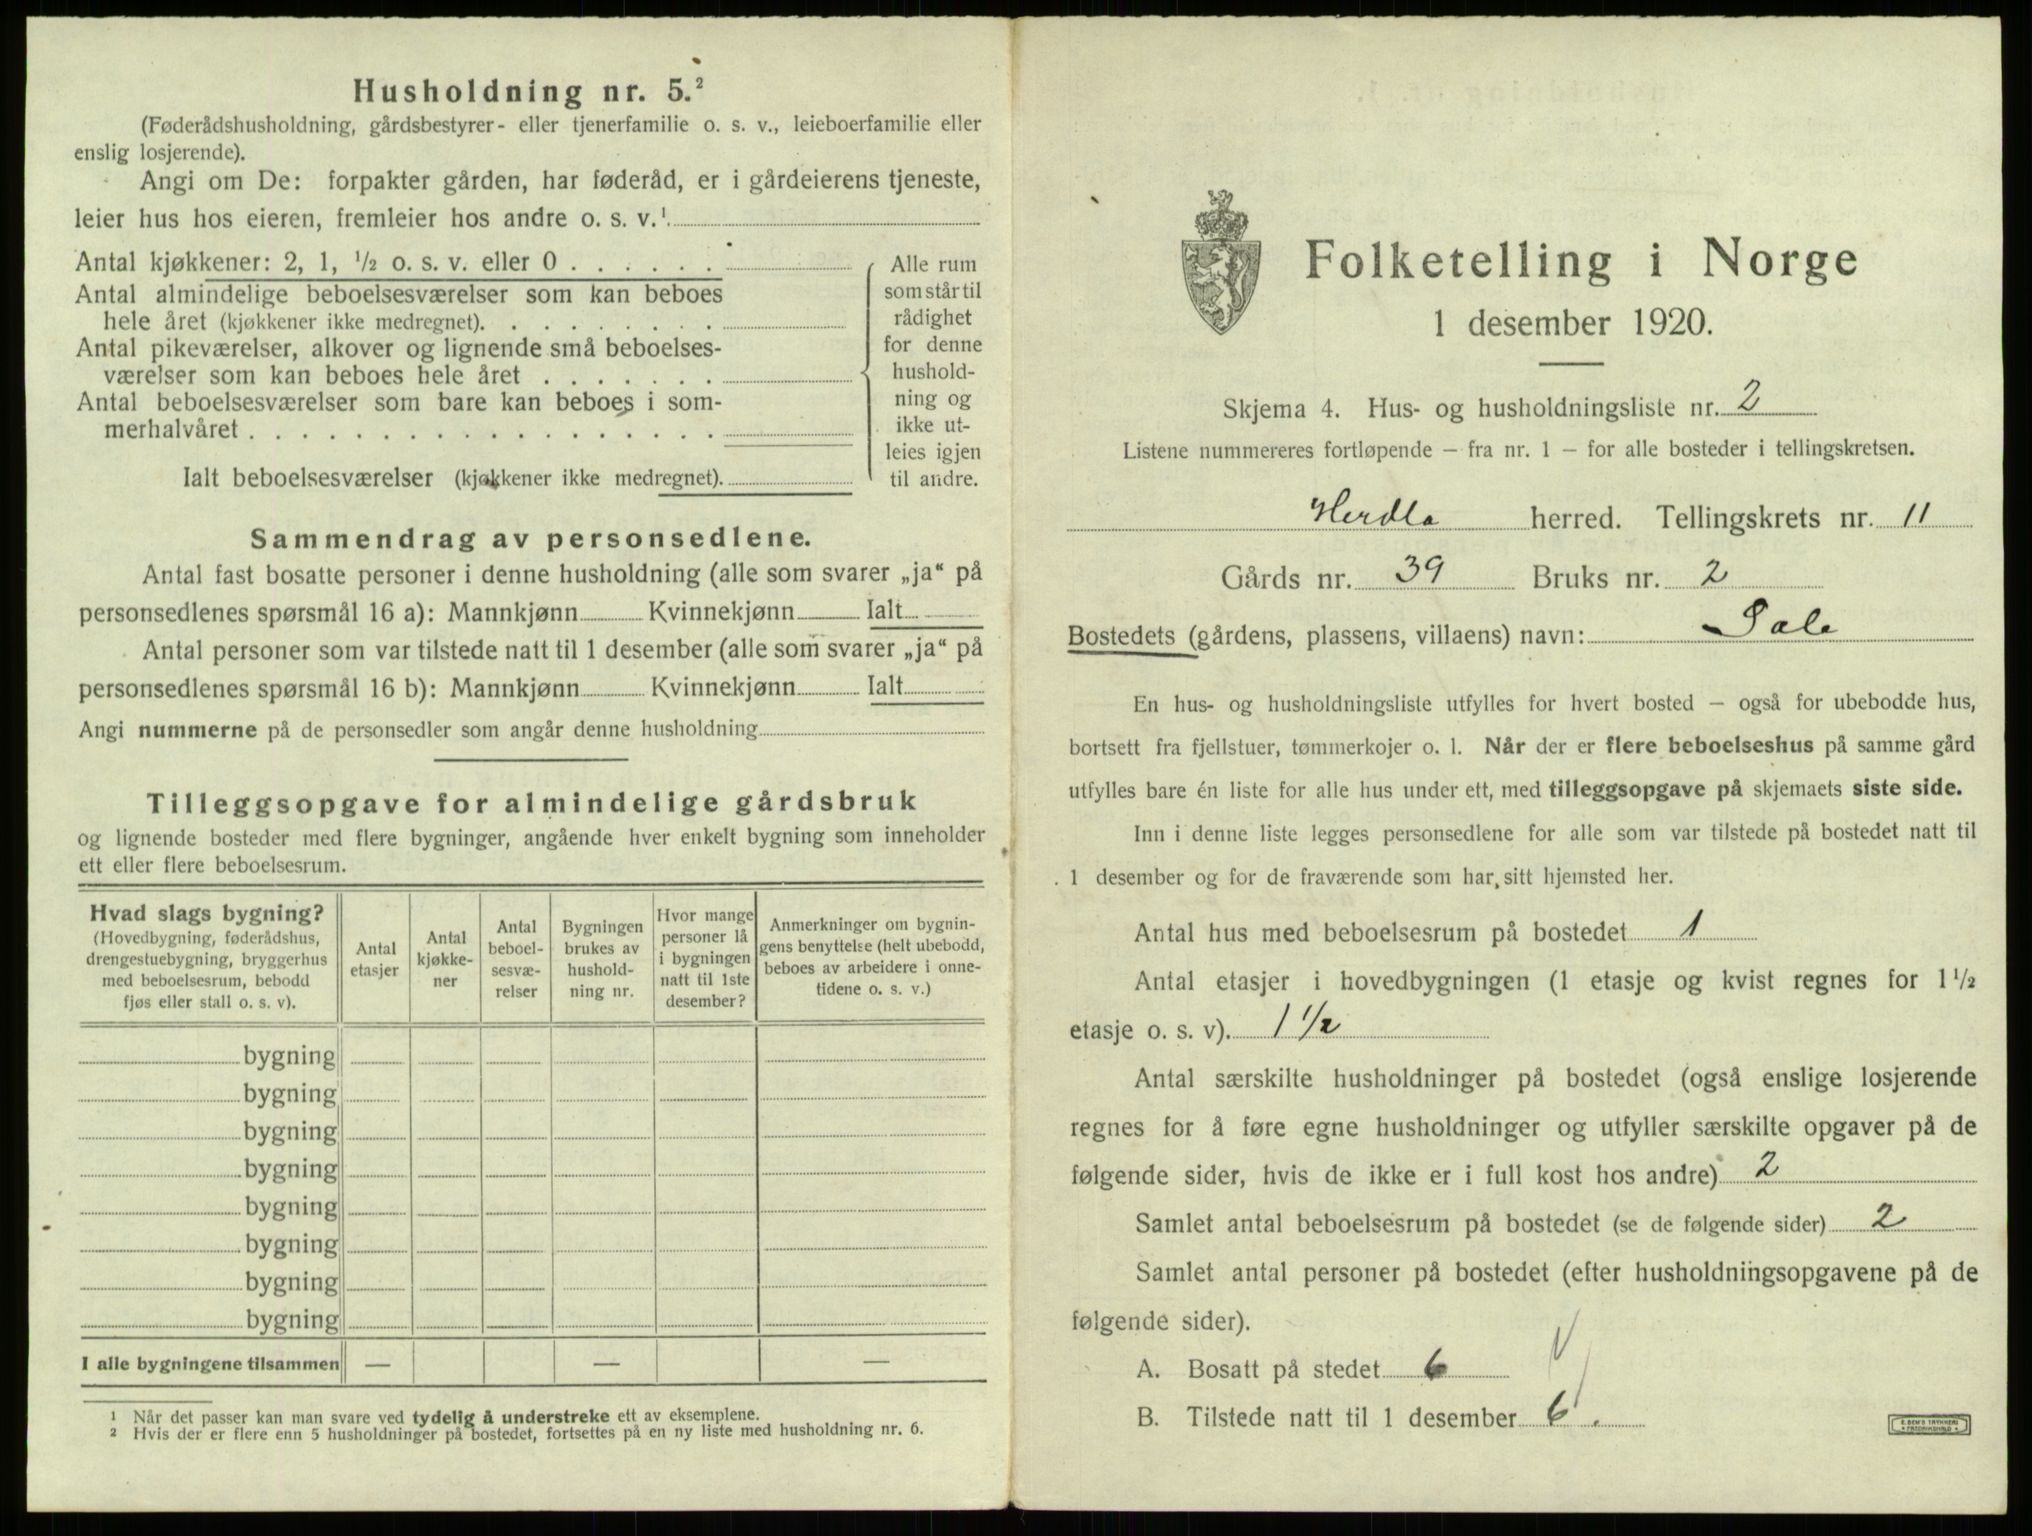 Husholdning nr. 5.²
(Føderådshusholdning, gårdsbestyrer- eller tjenerfamilie o. s. v., leieboerfamilie eller
enslig losjerende).
Angi om De: forpakter gården, har føderåd, er i gårdeierens tjeneste,
leier hus hos eieren, fremleier hos andre o. s. v.¹
Antal kjøkkener: 2, 1, ½ o. s. v. eller 0 . . . . . .
Antal almindelige beboelsesværelser som kan beboes
hele året (kjøkkener ikke medregnet). . . . . . . . .
Antal pikeværelser, alkover og lignende små beboelses-
værelser som kan beboes hele året . . . . . . .
Antal beboelsesværelser som bare kan beboes i som-
merhalvåret . . . . . . . . . . . . . . . . . .
Ialt beboelsesværelser (kjøkkener ikke medregnet).
Alle rum
som står til
rådighet
for denne
hushold-
ning og
ikke ut-
leies igjen
til andre.
Sammendrag av personsedlene.
Antal fast bosatte personer i denne husholdning (alle som svarer „ja“ på
personsedlenes spørsmål 16 a): Mannkjønn Kvinnekjønn Ialt
Antal personer som var tilstede natt til 1 desember (alle som svarer „ja“ på
personsedlenes spørsmål 16 b): Mannkjønn Kvinnekjønn Ialt
Angi nummerne på de personsedler som angår denne husholdning
Tilleggsopgave for almindelige gårdsbruk
og lignende bosteder med flere bygninger, angående hver enkelt bygning som inneholder
ett eller flere beboelsesrum.
Hvad slags bygning?
(Hovedbygning, føderådshus,
drengestuebygning, bryggerhus
med beboelsesrum, bebodd
fjøs eller stall o. s. v).
Antal
etasjer
Antal
kjøkke-
ner
Antal
beboel-
sesvæ-
relser
Bygningen
brukes av
hushold-
ning nr.
Hvor mange
personer lå
i bygningen
natt til 1ste
desember?
Anmerkninger om bygnin-
gens benyttelse (helt ubebodd,
beboes av arbeidere i onne-
tidene o. s. v.)
bygning
bygning
bygning
bygning
bygning
bygning
bygning
bygning
I alle bygningene tilsammen — — —
¹ Når det passer kan man svare ved tydelig å understreke ett av eksemplene.
² Hvis der er flere enn 5 husholdninger på bostedet, fortsettes på en ny liste med husholdning nr. 6.
Folketelling i Norge
1 desember 1920.
Skjema 4. Hus- og husholdningsliste nr. 2
Listene nummereres fortløpende – fra nr. 1 – for alle bosteder i tellingskretsen.
Herdla herred. Tellingskrets nr. 11
Gårds nr. 39 Bruks nr. 2
Bostedets (gårdens, plassens, villaens) navn: Sale
En hus- og husholdningsliste utfylles for hvert bosted – også for ubebodde hus,
bortsett fra fjellstuer, tømmerkojer o. l. Når der er flere beboelseshus på samme gård
utfylles bare én liste for alle hus under ett, med tilleggsopgave på skjemaets siste side.
Inn i denne liste legges personsedlene for alle som var tilstede på bostedet natt til
1 desember og for de fraværende som har sitt hjemsted her.
Antal hus med beboelsesrum på bostedet 1
Antal etasjer i hovedbygningen (1 etasje og kvist regnes for 1 ½
etasje o. s. v). 1 ½
Antal særskilte husholdninger på bostedet (også enslige losjerende
regnes for å føre egne husholdninger og utfyller særskilte opgaver på de
følgende sider, hvis de ikke er i full kost hos andre) 2
Samlet antal beboelsesrum på bostedet (se de følgende sider) 2
Samlet antal personer på bostedet (efter husholdningsopgavene på de
følgende sider).
A. Bosatt på stedet 6
B. Tilstede natt til 1 desember 6.